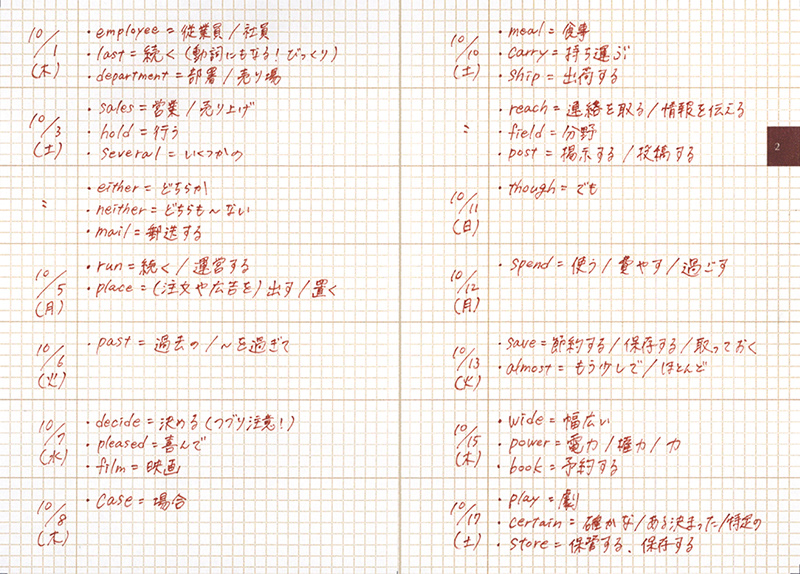 10/1(木)
・employee = 従業員 / 社員
・last = 続く (動詞にもなる! びっくり)
・department = 部署 / 売り場
10/3(土)
・sales = 営業 / 売り上げ
・hold = 行う
・several = いくつかの
〃
・either = どちらか
・neither = どちらも~ない
・mail = 郵送する
10/5(月)
・run = 続く / 運営する
・place = (注文や広告を) 出す / 置く
10/6(火)
・past = 過去の / ~を過ぎて
10/7(水)
・decide = 決める (つづり注意!)
・pleased = 喜んで
・film = 映画
10/8(木)
・case = 場合
10/10(土)
・meal = 食事
・carry = 持ち運ぶ
・ship = 出荷する
〃
・reach = 連絡を取る / 情報を伝える
・field = 分野
・post = 掲示する / 投稿する
10/11(日)
・though = でも
10/12(月)
・spend = 使う / 費やす / 過ごす
10/13(火)
・save = 節約する / 保存する / 取っておく
・almost = もう少しで / ほとんど
10/15(木)
・wide = 幅広い
・power = 電力 / 権力 / 力
・book = 予約する
10/17(土)
・play = 劇
・certain = 確かな / ある決まった / 特定の
・store = 保管する、保存する
2